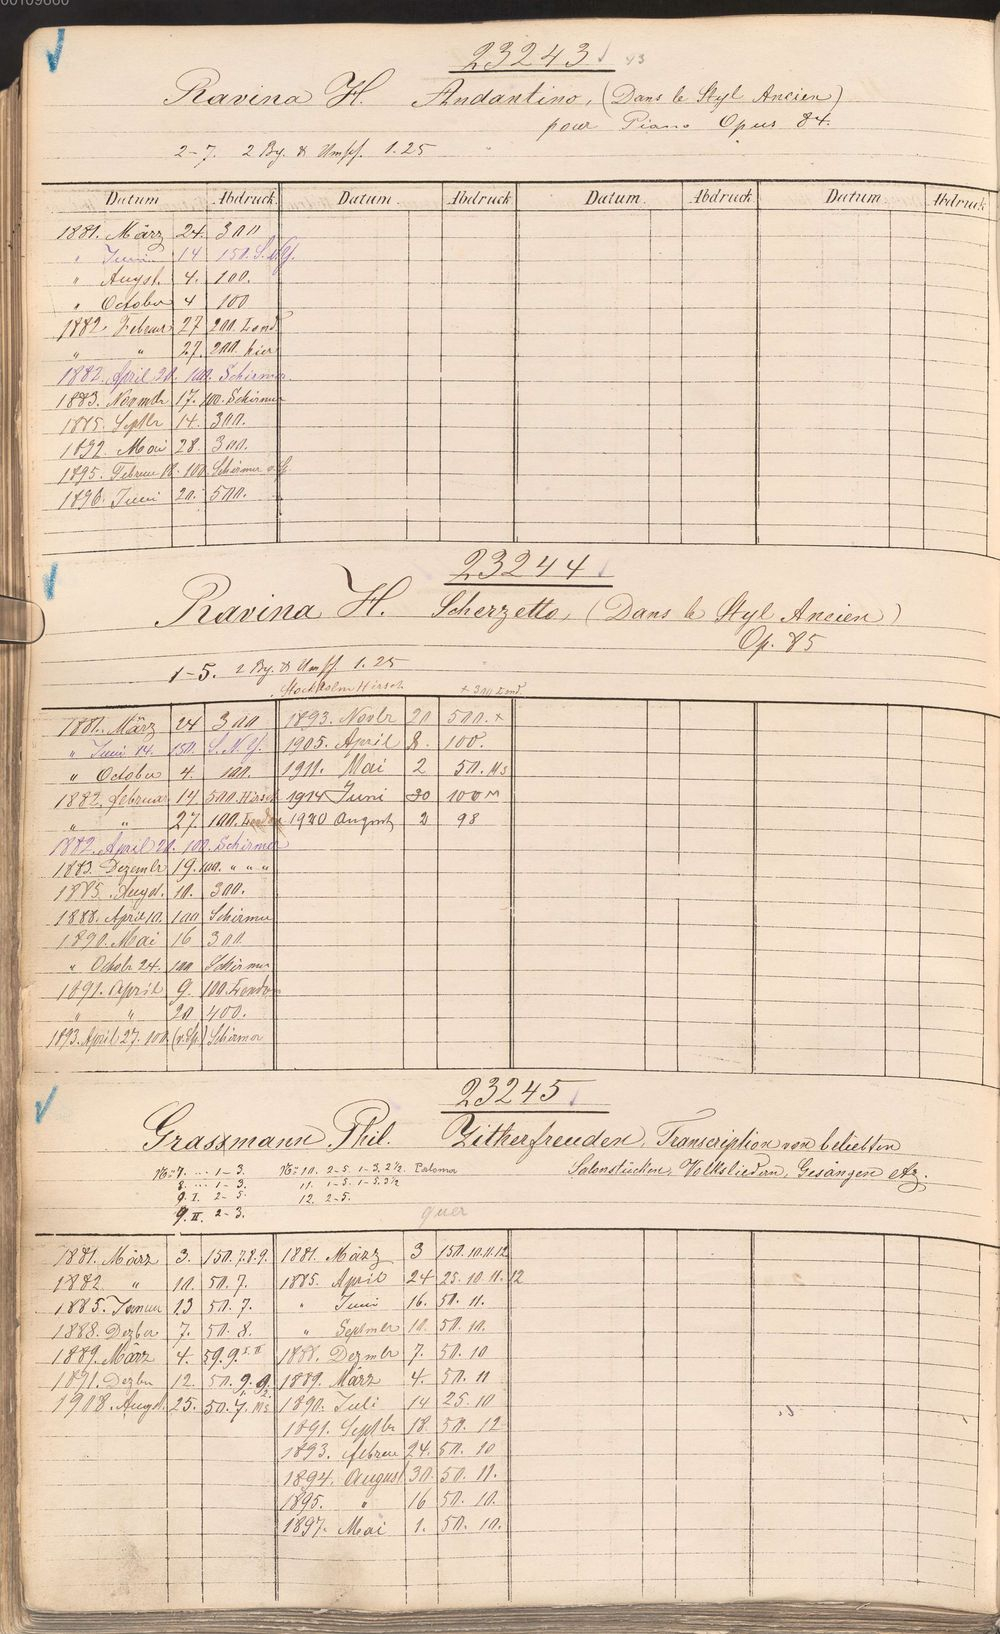 00109660
23243
Ravina H. Andantino, (Dans le Styl Ancien)
pour Piano Opus 84.
2-7. 2 Bg. & Umschl. 1.25
Datum Abdruck Datum. Abdruck Datum. Abdruck Datum. Abdruck
1881. März 24. 300
" Juni 14 150. S. N. Y.
" Augst. 4. 100.
" October 4 100
1882. Februar 27 200. Lond
" " 27. 200. hier
1882. April 20. 100. Schirmer.
1883. Novmbr 17. 100. Schirmer
1885. Septbr 14. 300.
1892. Mai 28. 300.
1895. Februar 18. 100. Schirmer
1896. Juni 20. 500.
23244
Ravina H. Scherzetto, (Dans le Styl Ancien)
Op. 85
1-5. 2 Bg. & Umschl. 1.25
Stockholm Hirsch + 300 Lond.
1881. März 24 300 1893. Novbr 20 500. +
" Juni 14. 150. S. N. Y. 1905. April 8. 100.
" October 4. 100. 1911. Mai 2 50. Ms
1882. februar 14. 500. Hirsch 1914 Juni 30 100 M
" " 27. 100. London 1920 August 2 98
1882. April 20. 100. Schirmer
1883. Dezembr 19. 100. " " "
1885. Augst. 10. 300.
1888. April 10. 100 Schirmer
1890. Mai 16 300
" Octobr 24. 100 Schirmer
1891. April 9. 100. London
" " 20 400.
1893. April 27. 100. Schirmer
23245
Graszmann Phil. Zitherfreuden, Transcription von beliebten
Salonstücken, Volksliedern, Gesängen etz.
No. 7. ... 1-3. No. 10. 2-5. 1-3, 2½. Paloma
8. ... 1-3. 11. 1-5. 1-5. 3½
9. I. 2-5. 12. 2-5.
9. II. 2-3.
quer
1881. März 3. 150. 7. 8. 9. 1881. März 3 150. 10. 11. 12
1882 " 10. 50. 7. 1885. April 24 25. 10. 11. 12
1885. Januar 13 50. 7. " Juni 16. 50. 11.
1888. Dezber 7. 50. 8. " Septmbr 10. 50. 10.
1889. März 4. 59. 9. I. II 1888. Dezmbr 7. 50. 10
1891. Dezbr 12. 50. 9. 9. 1889. März 4. 50. 11
1 2.
1908. Augst. 25. 50. 7. Ms 1890. Juli 14 25. 10
1891. Septbr 18. 50. 12
1893. februar 24. 50. 10
1894. August 30. 50. 11.
1895. " 16 50. 10.
1897. Mai 1. 50. 10.